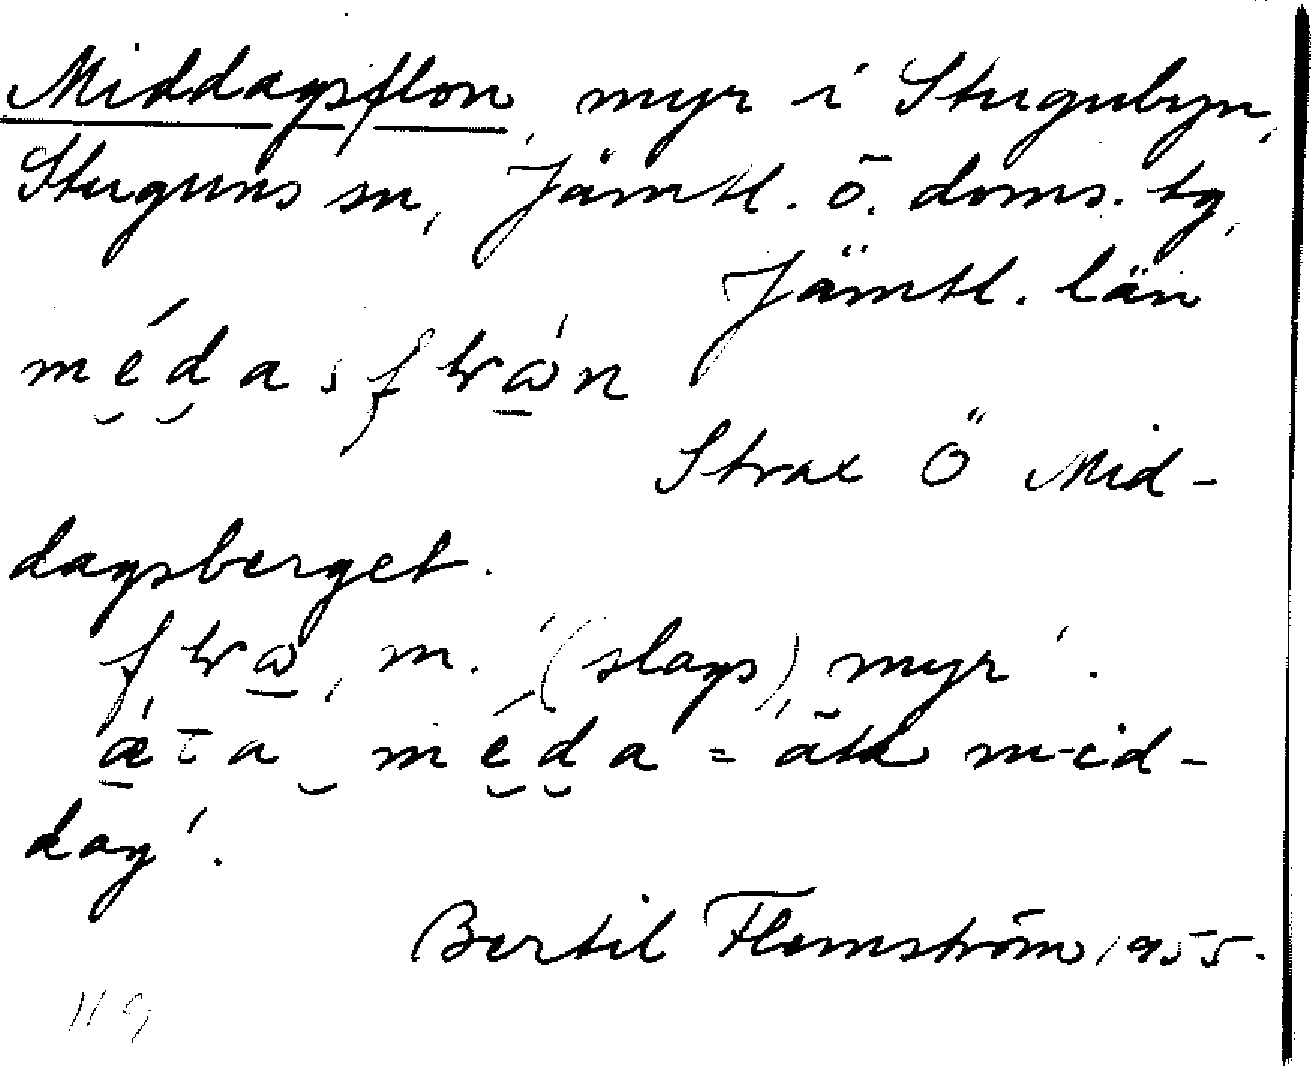 Middagsflon, myr i Stugubyn,
Stuguns sn, Jämtl. ö. doms. tg,
Jämtl. län
Strax Ö Mid-
dagsberget.
m. '(slags) myr'.
= äta mid-
dag'.
Bertil Flemström 1955.
119